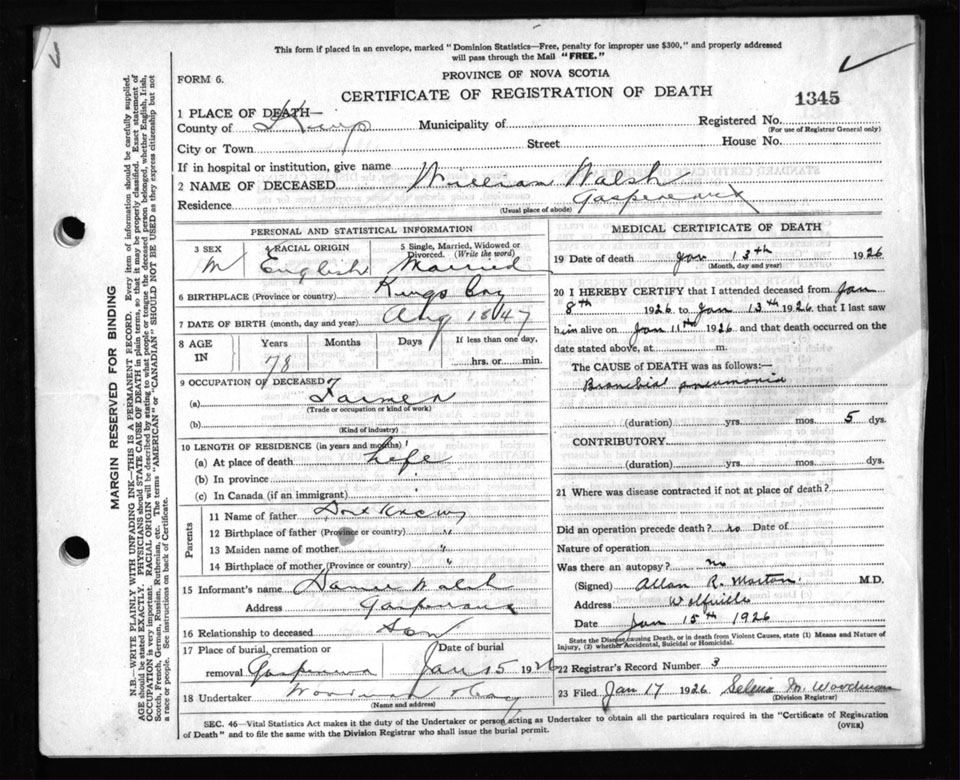 This form if placed in an envelope, marked "Dominion Statistics—Free, penalty for improper use $300," and properly addressed
will pass through the Mail "FREE."
FORM 6.
PROVINCE OF NOVA SCOTIA
CERTIFICATE OF REGISTRATION OF DEATH
1345
1 PLACE OF DEATH—
County of Kings Municipality of Registered No.
(For use of Registrar General only)
City or Town Street House No.
If in hospital or institution, give name
2 NAME OF DECEASED William Walsh
Residence Gaspereaux
(Usual place of abode)
PERSONAL AND STATISTICAL INFORMATION
3 SEX 4 RACIAL ORIGIN 5 Single, Married, Widowed or Divorced. (Write the word)
M English Married
6 BIRTHPLACE (Province or country) Kings Coy
7 DATE OF BIRTH (month, day and year) Aug 1847
8 AGE IN Years Months Days If less than one day,
78 hrs. or min.
9 OCCUPATION OF DECEASED
(a) Farmer
(Trade or occupation or kind of work)
(b)
(Kind of industry)
10 LENGTH OF RESIDENCE (in years and months)
(a) At place of death Life
(b) In province
(c) In Canada (if an immigrant)
Parents
11 Name of father Dont Know
12 Birthplace of father (Province or country) "
13 Maiden name of mother "
14 Birthplace of mother (Province or country) "
15 Informant's name Walsh
Address Gaspereaux
16 Relationship to deceased Son
17 Place of burial, cremation or Date of burial
removal Jan 15 1926
18 Undertaker Woodman
(Name and address)
MEDICAL CERTIFICATE OF DEATH
19 Date of death Jan 13th 1926
(Month, day and year)
20 I HEREBY CERTIFY that I attended deceased from Jan
8th 1926 to Jan 13th 1926 that I last saw
him alive on Jan 11th 1926 and that death occurred on the
date stated above, at m.
The CAUSE of DEATH was as follows:—
Bronchial pneumonia
(duration) yrs. mos. 5 dys.
CONTRIBUTORY
(duration) yrs. mos. dys.
21 Where was disease contracted if not at place of death?
Did an operation precede death? no Date of
Nature of operation
Was there an autopsy? no
(Signed) Allan R. Morton M.D.
Address Wolfville
Date Jan 15th 1926
State the Disease causing Death, or in death from Violent Causes, state (1) Means and Nature of
Injury, (2) whether Accidental, Suicidal or Homicidal.
22 Registrar's Record Number 3
23 Filed Jan 17 1926 Selena M. Woodman
(Division Registrar)
SEC. 46—Vital Statistics Act makes it the duty of the Undertaker or person acting as Undertaker to obtain all the particulars required in the "Certificate of Registration
of Death" and to file the same with the Division Registrar who shall issue the burial permit. (OVER)
MARGIN RESERVED FOR BINDING
N.B.—WRITE PLAINLY WITH UNFADING INK—THIS IS A PERMANENT RECORD. Every item of information should be carefully supplied.
AGE should be stated EXACTLY. PHYSICIANS should STATE CAUSE OF DEATH in plain terms, so that it may be properly classified. Exact statement of
OCCUPATION is very important. RACIAL ORIGIN will be described by stating to what people or tongue the deceased person belonged, whether English, Irish,
Scotch, French, German, Russian, Ruthenian, etc. The terms "AMERICAN" or "CANADIAN" SHOULD NOT BE USED as they express citizenship but not
a race or people. See instructions on back of Certificate.